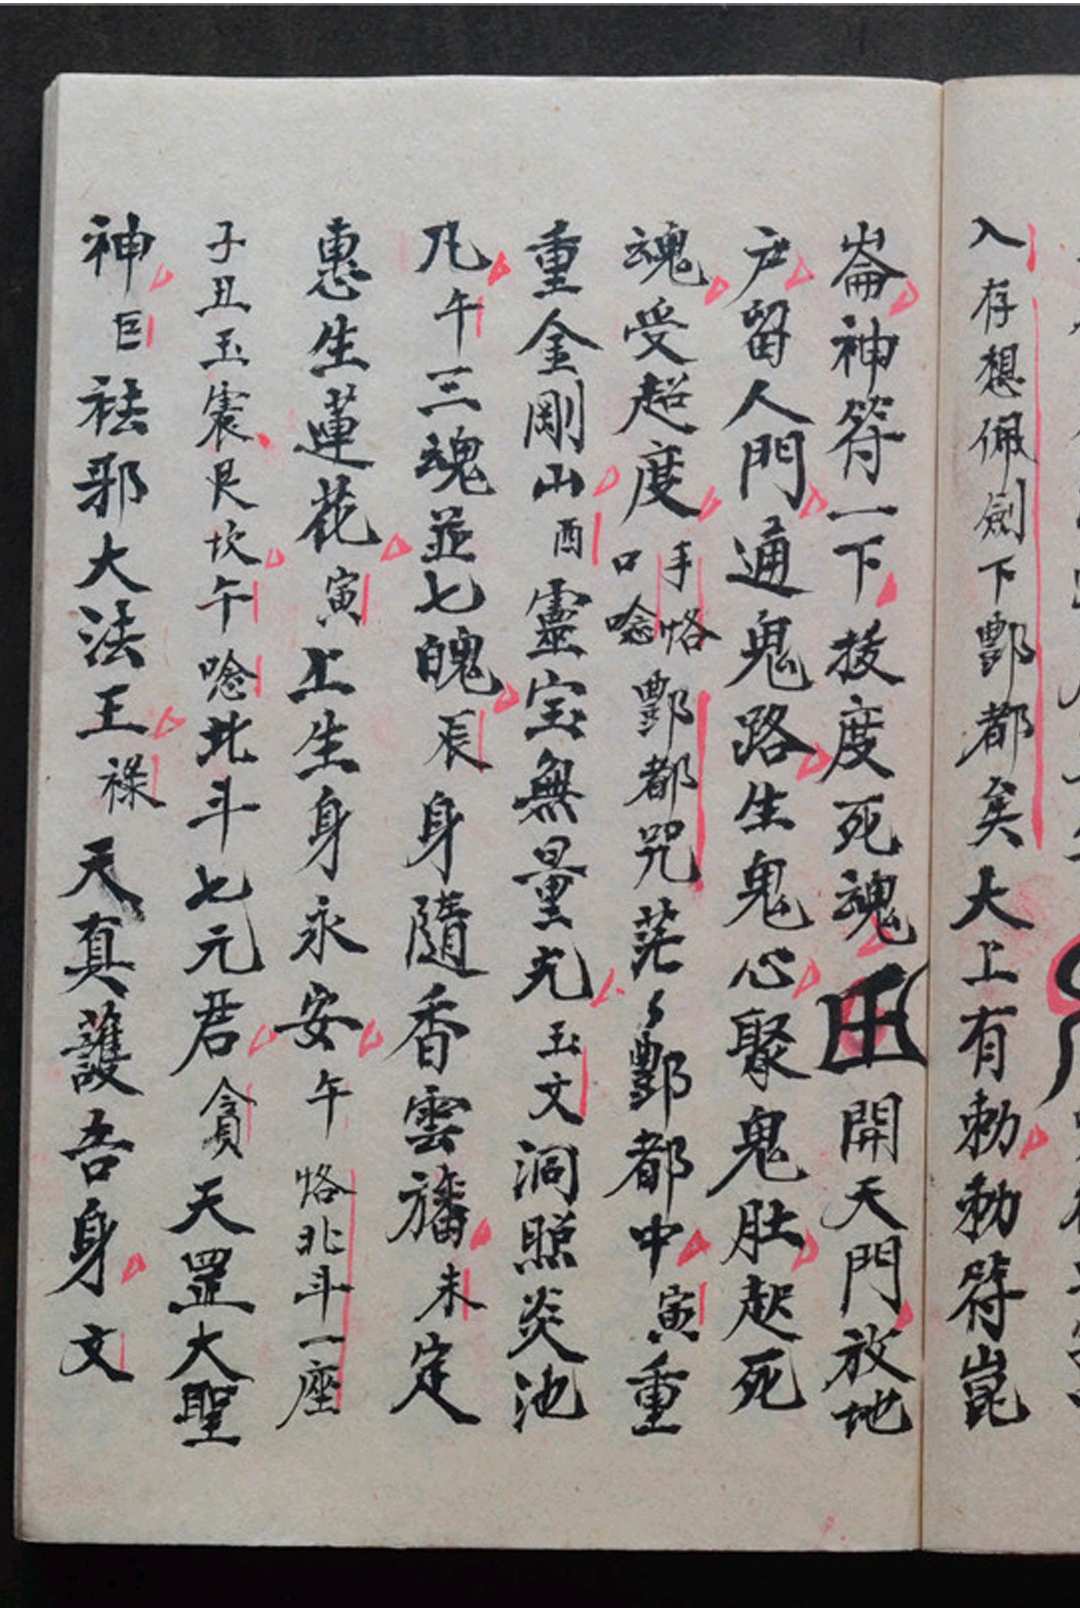 入存想佩劍下酆都矣大上有勅勅符崑
崙神符一下拔度死魂 開天門放地
户留人門通鬼路生鬼心聚鬼肚起死
魂受超度手恪口唸酆都咒茫々酆都中寅重
重金剛山酉靈宝無量光玉文洞照炎池
凡午三魂並七魄辰身隨香雲旛未定
惠生蓮花寅上生身永安午恪北斗一座
子丑玉震艮坎午唸北斗七元君貪天罡大聖
神巨祛邪大法王祿天真護吾身文